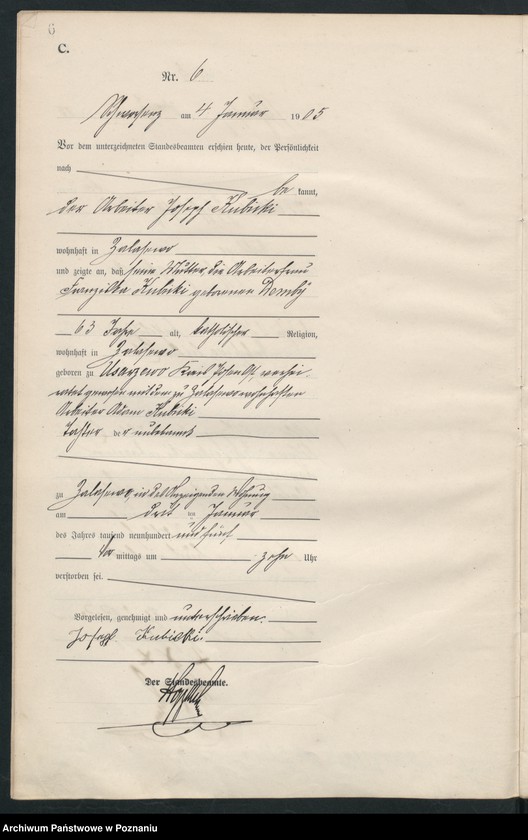 6
C.
Nr. 6
Schwersenz am 4 Januar 1905
Vor dem unterzeichneten Standesbeamten erschien heute, der Persönlichkeit
nach be kannt,
der Arbeiter Joseph Kubicki
wohnhaft in Zalasewo
und zeigte an, daß seine Mutter, die Arbeiterfrau
Kubicki geborenen Demby
63 Jahre alt, katholischer Religion,
wohnhaft in Zalasewo
geboren zu Usarzewo Kreis Posen Ost, verhei-
ratet gewesen mit dem zu Zalasewo wohnhaften
Arbeiter Adam Kubicki
Tochter der unbekannt
zu Zalasewo, in des Anzeigenden Wohnung
am drit ten Januar
des Jahres tausend neunhundert und fünf
Vor mittags um zehn Uhr
verstorben sei.
Vorgelesen, genehmigt und unterschrieben.
Josef Kubicki.
Der Standesbeamte.
Archiwum Państwowe w Poznaniu